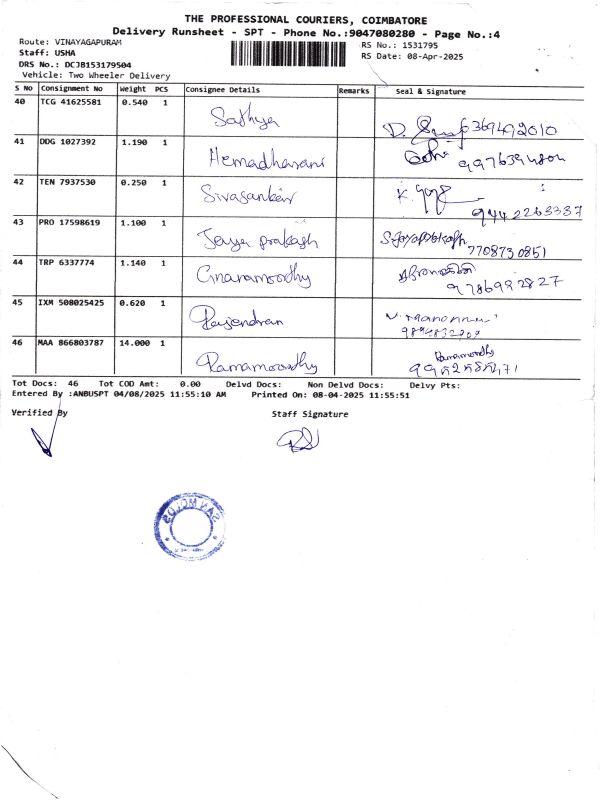 THE PROFESSIONAL COURIERS, COIMBATORE
Delivery Runsheet - SPT - Phone No.:9047080280 - Page No.:4
Route: VINAYAGAPURAM
RS No.: 1531795
Staff: USHA
RS Date: 08-Apr-2025
DRS No.: DCJB153179504
Vehicle: Two Wheeler Delivery
S No Consignment No Weight PCS Consignee Details Remarks Seal & Signature
40 TCG 41625581 0.540 1 Sathya D. 6369492010
41 DDG 1027392 1.190 1 Hemadharani 9976394804
42 TEN 7937530 0.250 1 Sivasankar K. 9442263337
43 PRO 17598619 1.100 1 Jeya prakash S.Jayaprakash 7708730851
44 TRP 6337774 1.140 1 Gnanamoorthy 9786992827
45 IXM 508025425 0.620 1 Rajendran
46 MAA 866803787 14.000 1 Ramamoorthy Ramamoorthy
Tot Docs: 46 Tot COD Amt: 0.00 Delvd Docs: Non Delvd Docs: Delvy Pts:
Entered By :ANBUSPT 04/08/2025 11:55:10 AM Printed On: 08-04-2025 11:55:51
Verified By Staff Signature